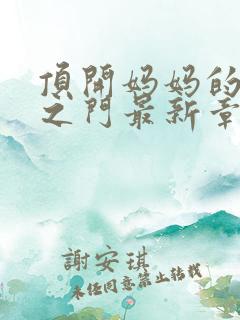 頂開妈妈的
之门最新章
謝安琪
未经同意禁止转载